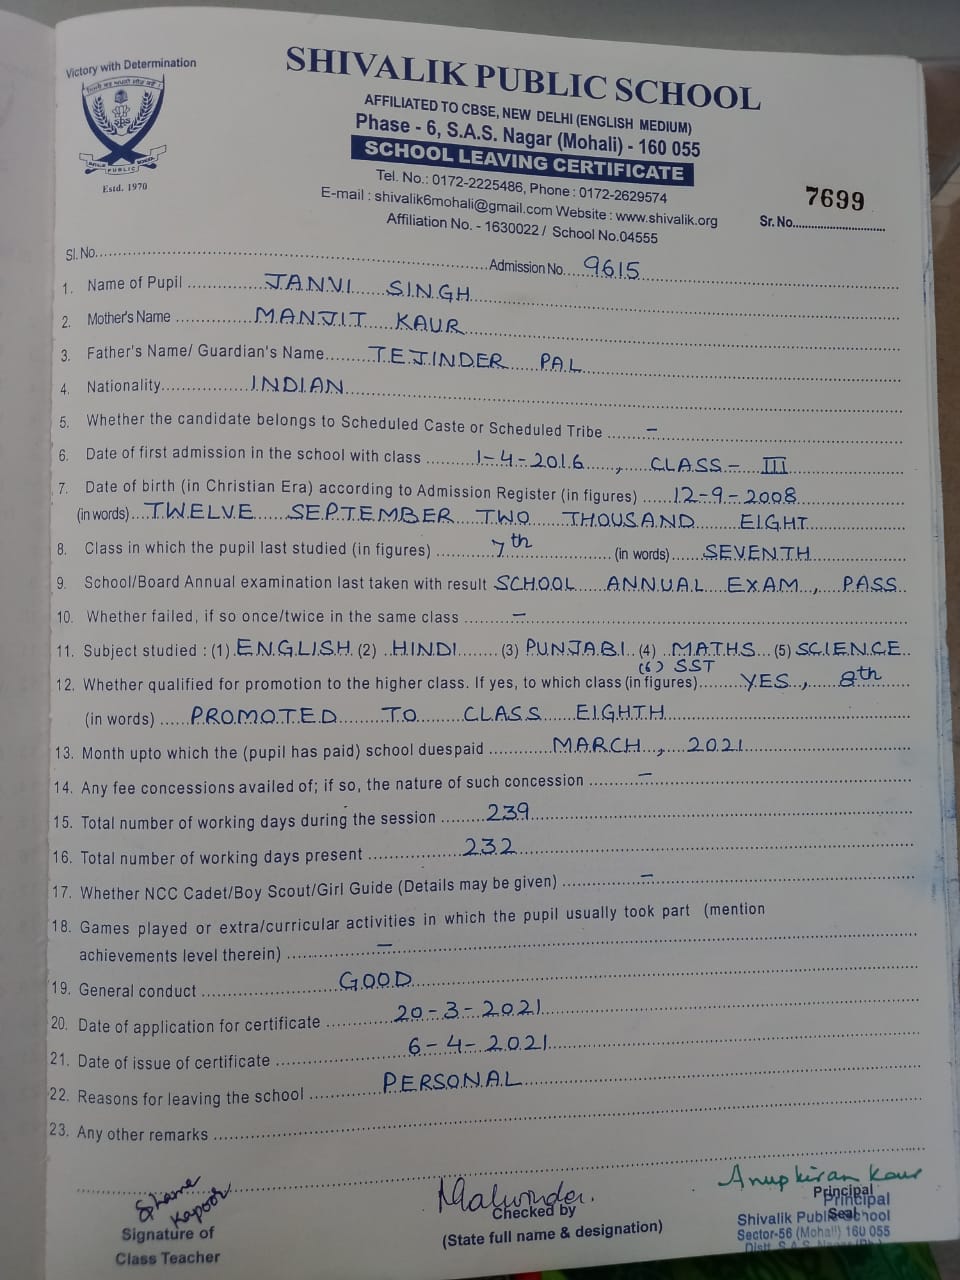 Victory with Determination
SHIVALIK PUBLIC SCHOOL
AFFILIATED TO CBSE, NEW DELHI (ENGLISH MEDIUM)
Phase - 6, S.A.S. Nagar (Mohali) - 160 055
SCHOOL LEAVING CERTIFICATE
Tel. No.: 0172-2225486, Phone : 0172-2629574
E-mail : shivalik6mohali@gmail.com Website : www.shivalik.org
Affiliation No. - 1630022 / School No.04555
PUBLIC
Estd. 1970
7699
Sr. No.
Sl. No. Admission No. 9615
1. Name of Pupil JANVI SINGH
2. Mother's Name MANJIT KAUR
3. Father's Name/ Guardian's Name TEJINDER PAL
4. Nationality INDIAN
5. Whether the candidate belongs to Scheduled Caste or Scheduled Tribe –
6. Date of first admission in the school with class 1-4-2016, CLASS - III
7. Date of birth (in Christian Era) according to Admission Register (in figures) 12-9-2008
(in words) TWELVE SEPTEMBER TWO THOUSAND EIGHT
8. Class in which the pupil last studied (in figures) 7th (in words) SEVENTH
9. School/Board Annual examination last taken with result SCHOOL ANNUAL EXAM, PASS
10. Whether failed, if so once/twice in the same class –
11. Subject studied : (1) ENGLISH (2) HINDI (3) PUNJABI (4) MATHS (5) SCIENCE
(6) SST
12. Whether qualified for promotion to the higher class. If yes, to which class (in figures) YES, 8th
(in words) PROMOTED TO CLASS EIGHTH
13. Month upto which the (pupil has paid) school duespaid MARCH, 2021
14. Any fee concessions availed of; if so, the nature of such concession –
15. Total number of working days during the session 239
16. Total number of working days present 232
17. Whether NCC Cadet/Boy Scout/Girl Guide (Details may be given) –
18. Games played or extra/curricular activities in which the pupil usually took part (mention
achievements level therein) –
19. General conduct GOOD
20. Date of application for certificate 20-3-2021
21. Date of issue of certificate 6-4-2021
22. Reasons for leaving the school PERSONAL
23. Any other remarks
Kapoor
Signature of
Class Teacher
Malwinder
Checked by
(State full name & designation)
Anupkiran Kaur
Principal
Seal
Principal
Shivalik Public School
Sector-56 (Mohali) 160 055